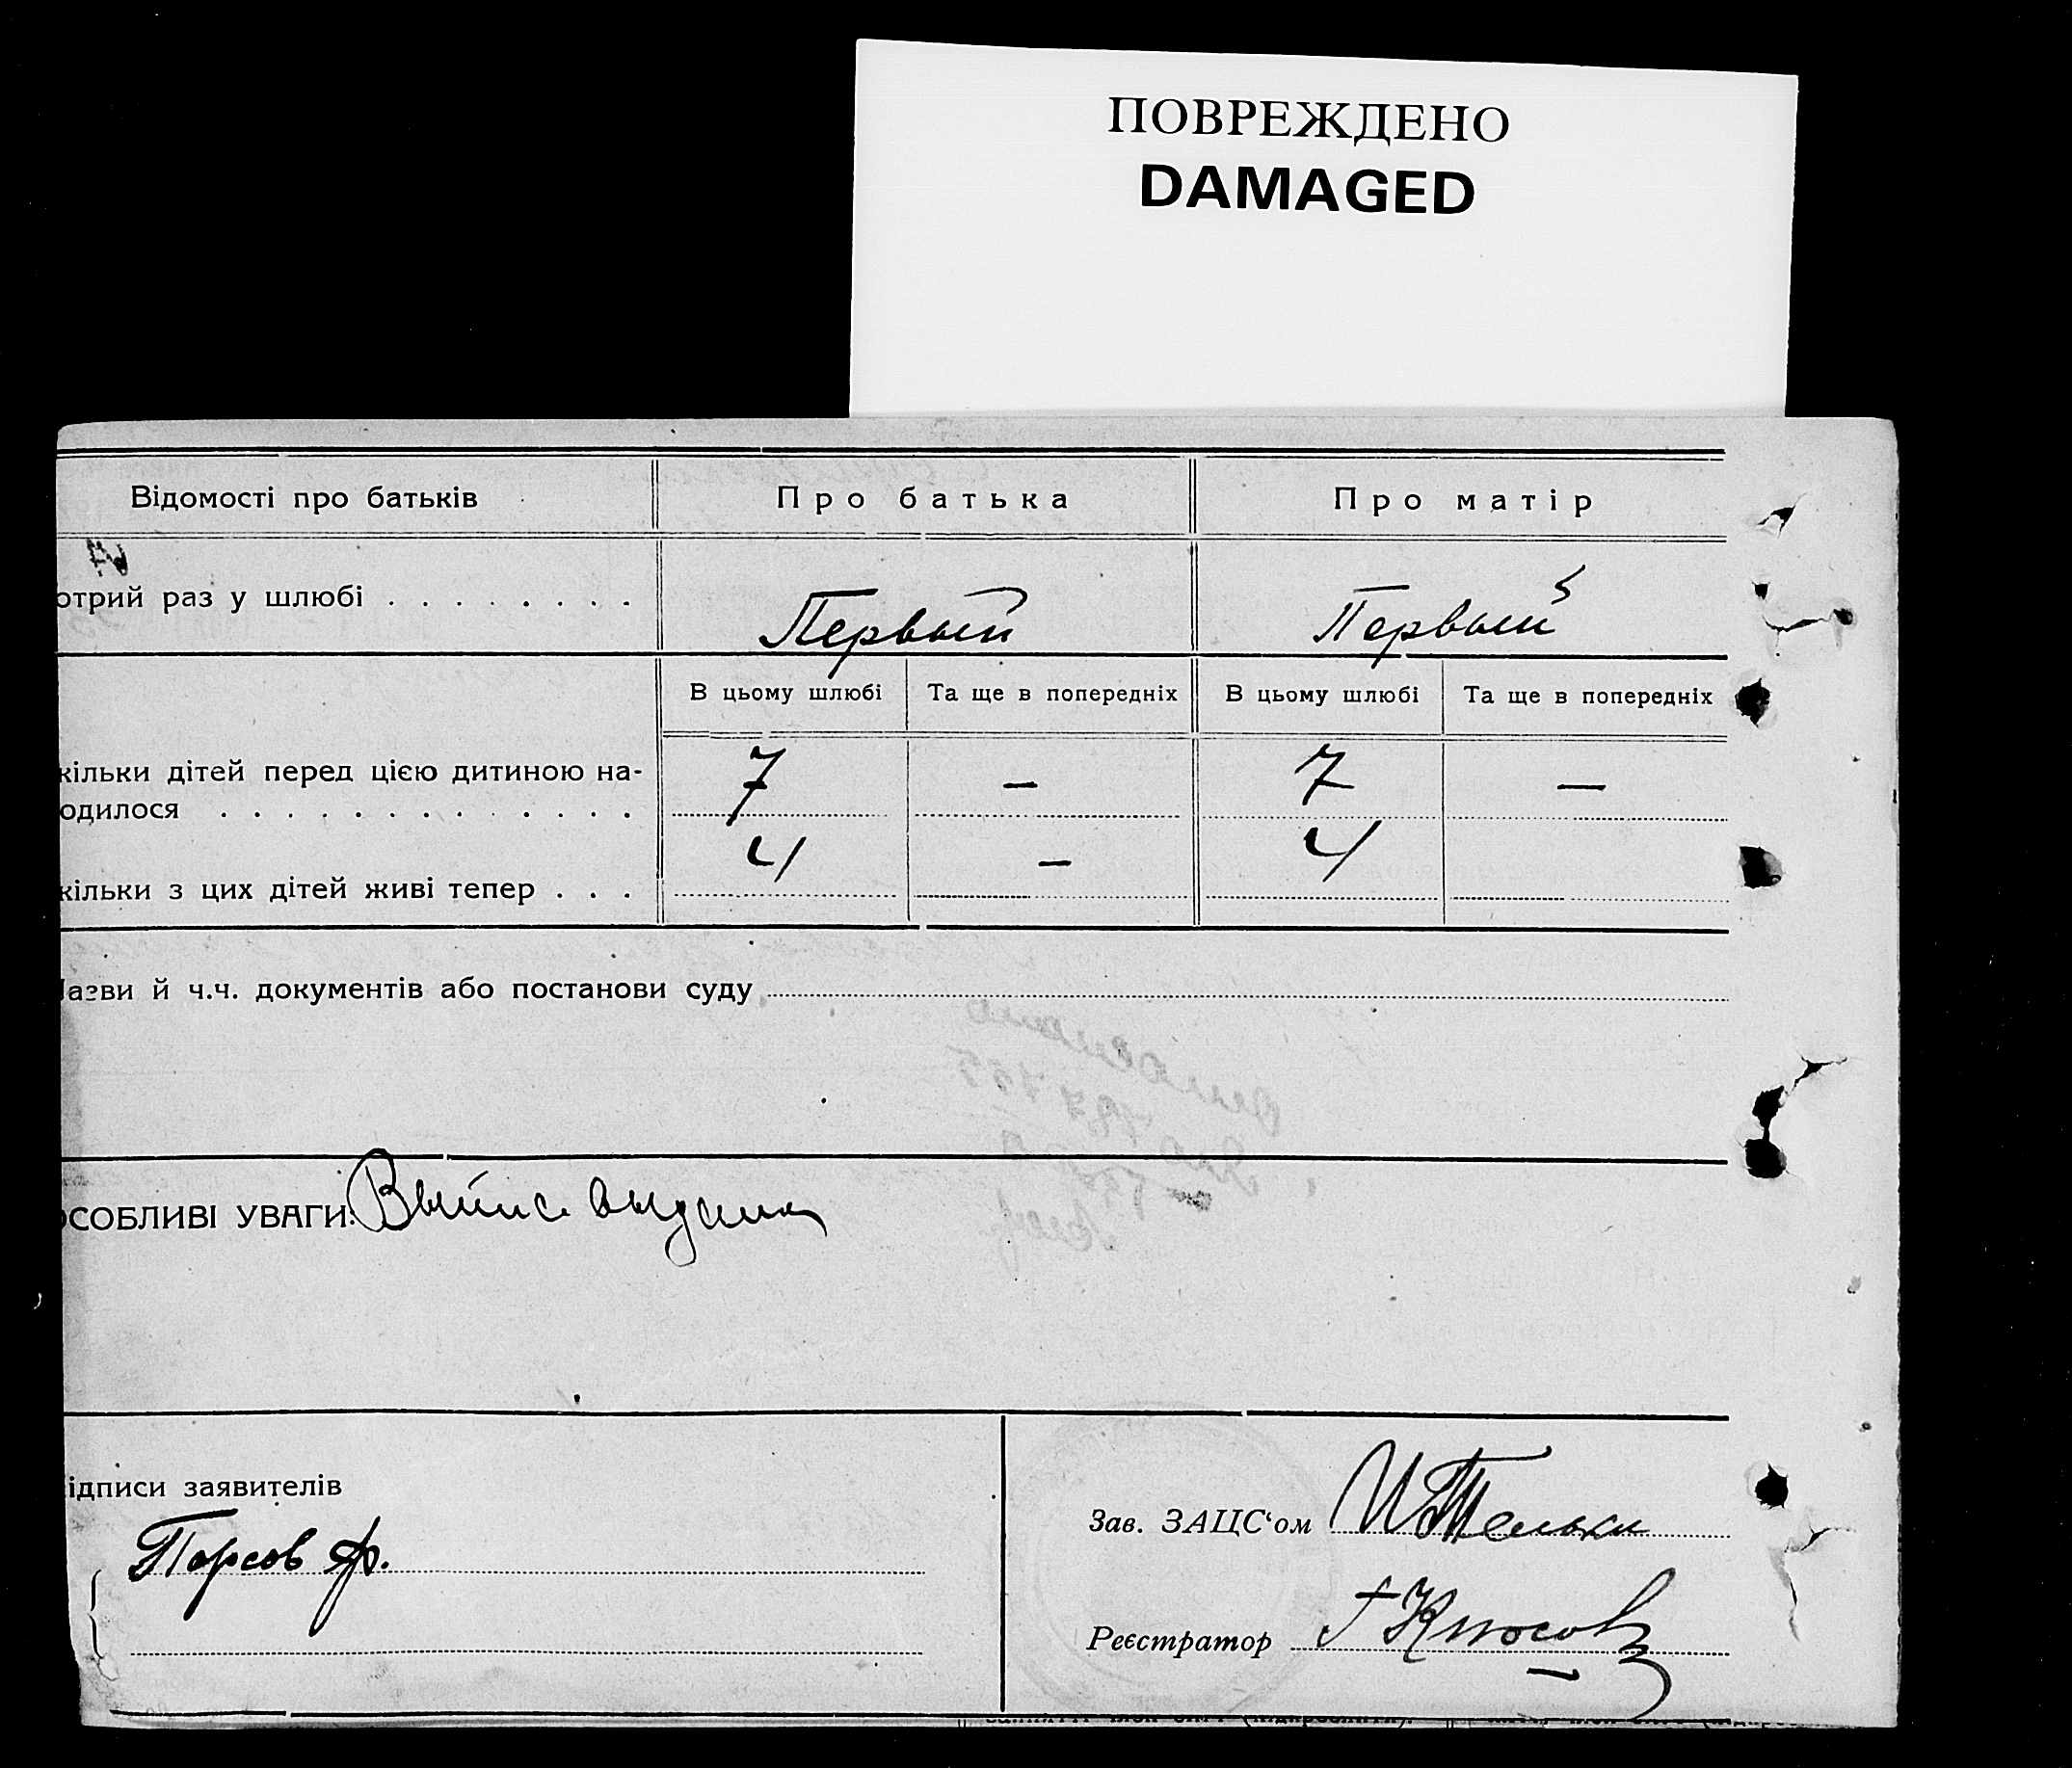 ПОВРЕЖДЕНО
DAMAGED
Відомості про батьків Про батька Про матір
отрий раз у шлюбі . . . . . . . . Первый Первый
В цьому шлюбі Та ще в попередніх В цьому шлюбі Та ще в попередніх
кільки дітей перед цією дитиною на-
одилося . . . . . . . . . . . . . . 7 — 7 —
кільки з цих дітей живі тепер . . . 4 — 4
азви й ч.ч. документів або постанови суду
ОСОБЛИВІ УВАГИ:
ідписи заявителів
Зав. ЗАЦС‘ом
Порсов Ф.
Реєстратор